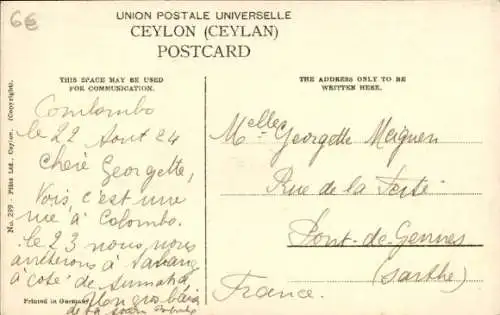 6€
UNION POSTALE UNIVERSELLE
CEYLON (CEYLAN)
POSTCARD
THIS SPACE MAY BE USED
FOR COMMUNICATION.
THE ADDRESS ONLY TO BE
WRITTEN HERE.
No. 299 - Plâté Ltd., Ceylon. (Copyright).
Comlombo
le 22 Aout 24
Chère Georgette,
Vois, c'est une
vue à Colombo.
le 23 nous nous
arrêterons à
à coté de Sumatra
Un gros
de ta
Printed in Germany
Melle Georgette Meignen
Rue de la Ferté
Pont-de-Gennes
(Sarthe)
France.